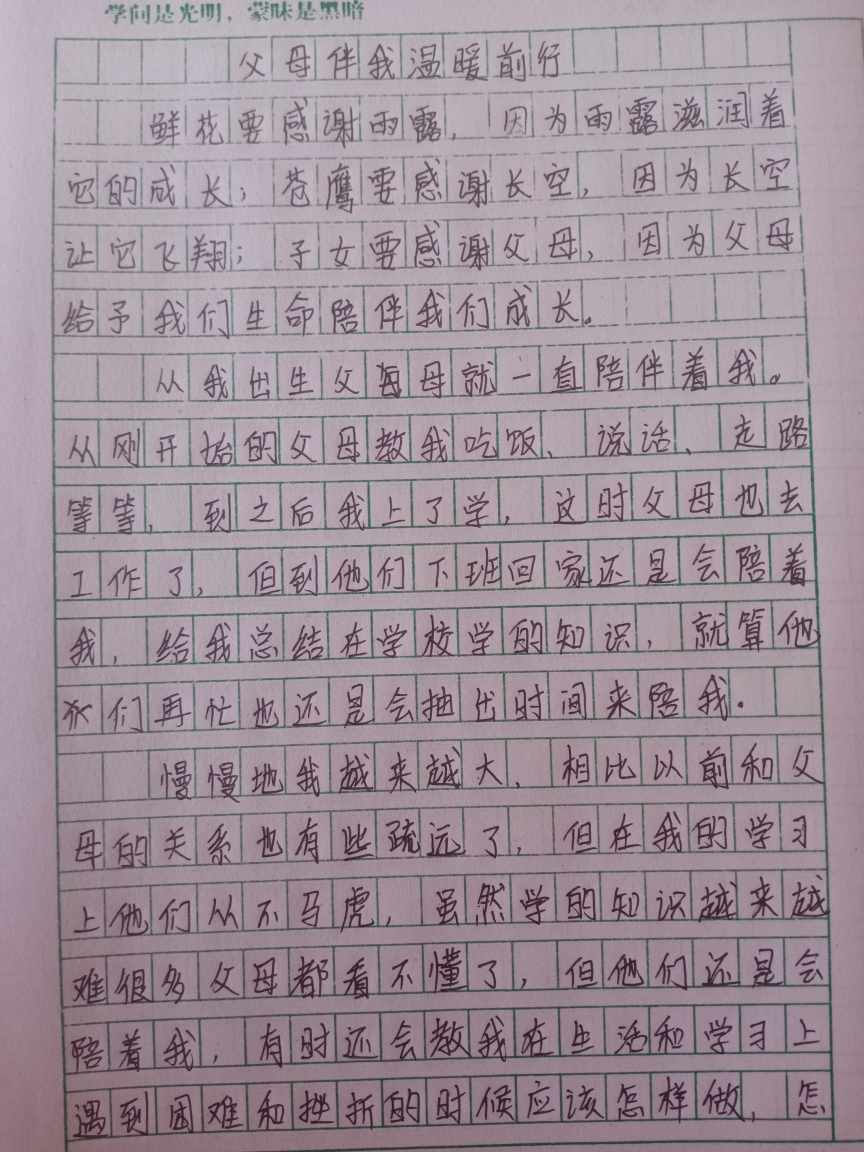 学问是光明，蒙昧是黑暗
父母伴我温暖前行
鲜花要感谢雨露，因为雨露滋润着
它的成长；苍鹰要感谢长空，因为长空
让它飞翔；子女要感谢父母，因为父母
给予我们生命陪伴我们成长。
从我出生父母就一直陪伴着我。
从刚开始的父母教我吃饭、说话、走路
等等，到之后我上了学，这时父母也去
工作了，但到他们下班回家还是会陪着
我，给我总结在学校学的知识，就算他
们再忙也还是会抽出时间来陪我.
慢慢地我越来越大，相比以前和父
母的关系也有些疏远了，但在我的学习
上他们从不马虎，虽然学的知识越来越
难很多父母都看不懂了，但他们还是会
陪着我，有时还会教我在生活和学习上
遇到困难和挫折的时候应该怎样做，怎